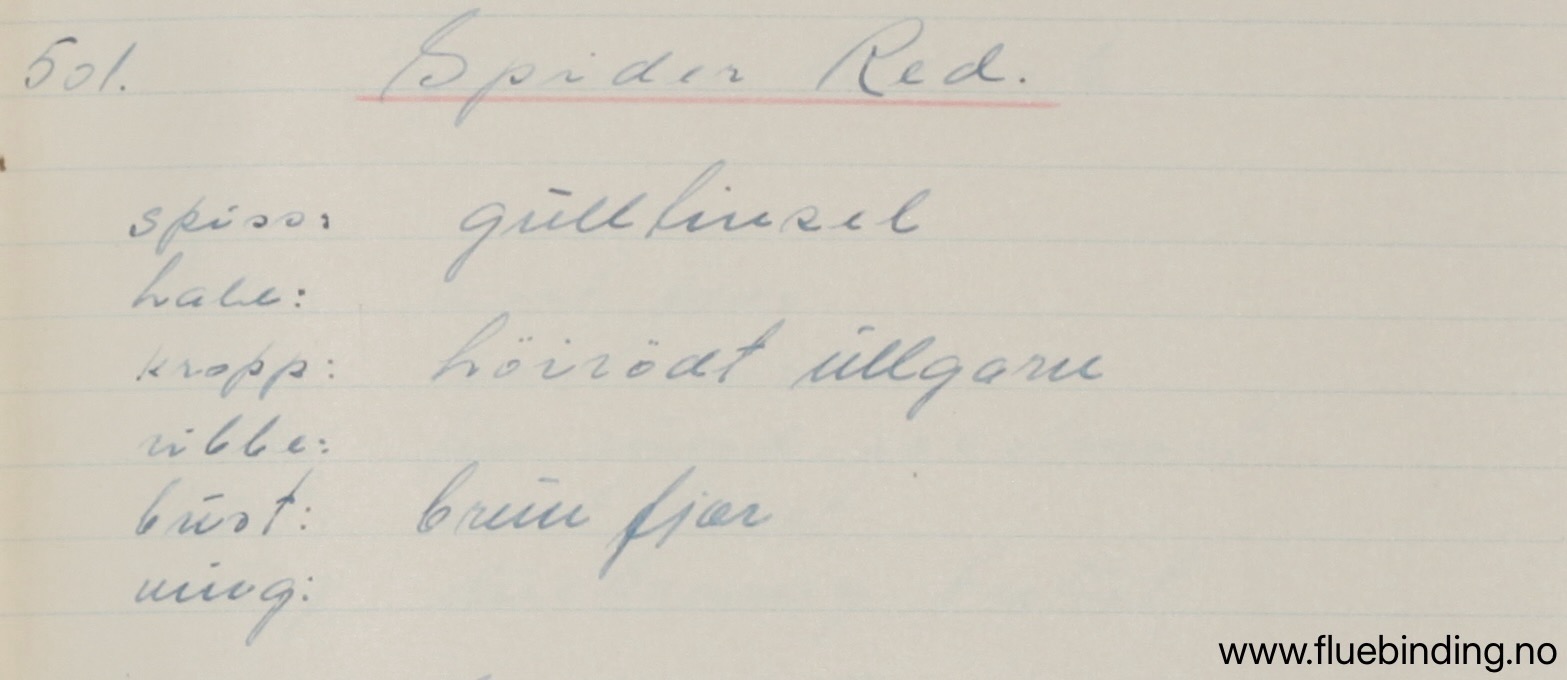 501. Spider Red.
spiss: gulltinsel
hale:
kropp: höirödt ullgarn
ribbe:
bust: brun fjær
ving:
www.fluebinding.no